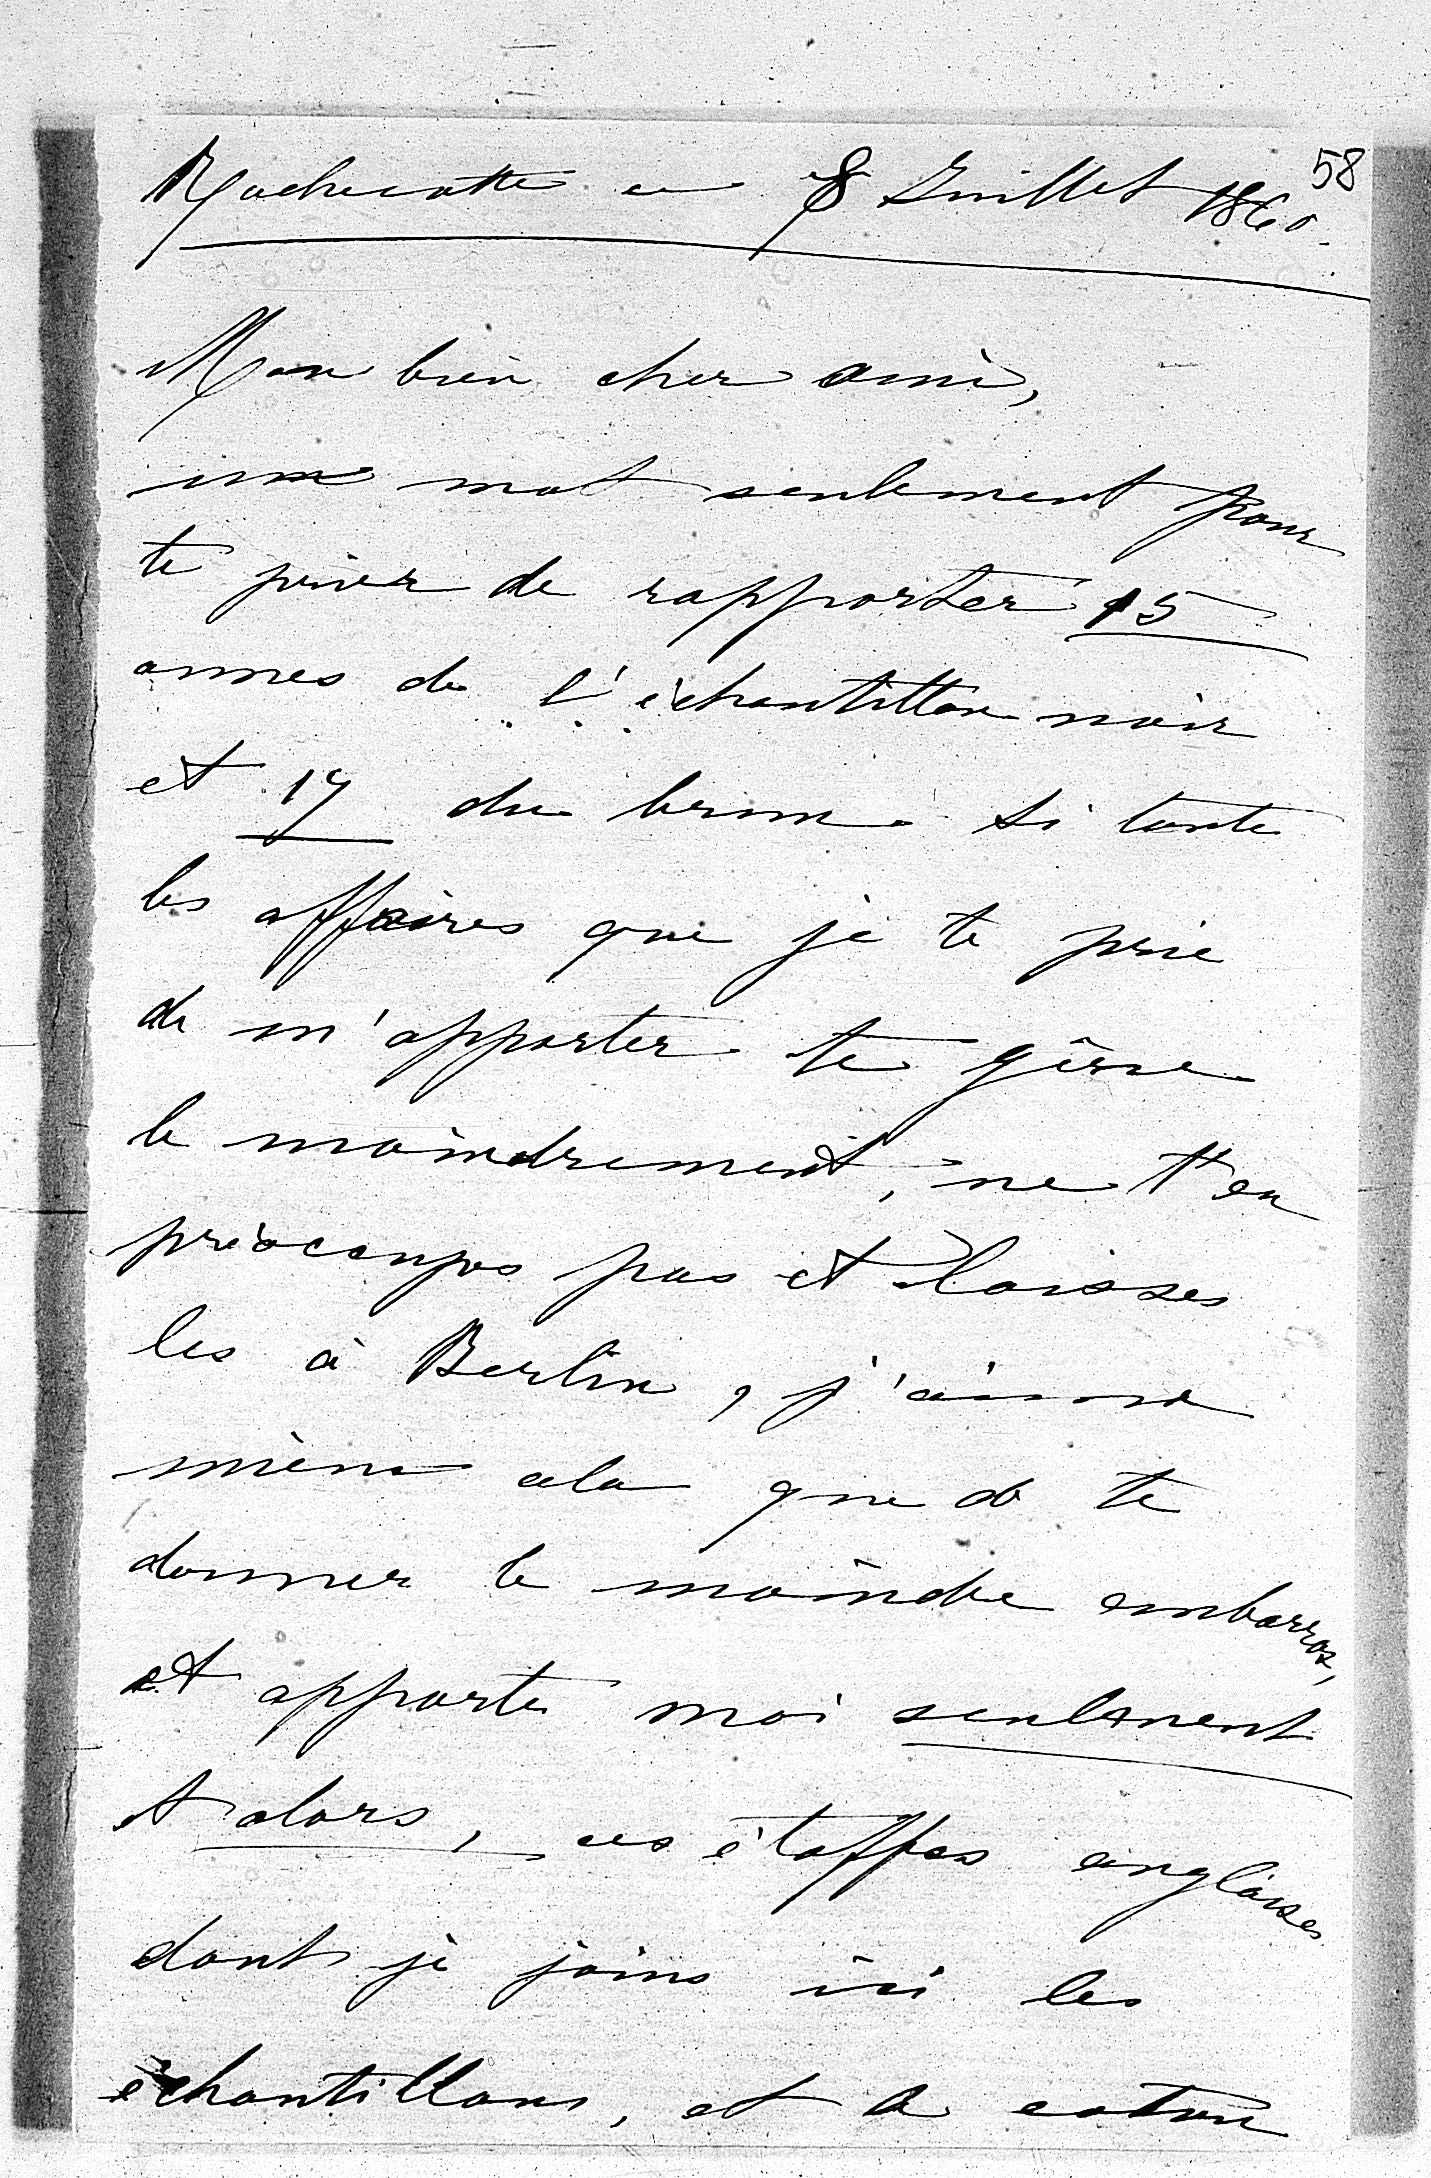 58
Rochecotte ce 8 Juillet 1860.
Mon bien cher ami,
un mot seulement pour
te prier de rapporter 15
aunes de l'échantillon noir
et 17 du brun. Si toute
les affaires que je te prie
de m'apporter te gêne
le moindrement, ne t'en
préoccupes pas et laisses
les à Berlin, j'aime
mieux cela que de te
donner le moindre embarras,
et apporte moi seulement
alors, ces étoffes anglaises
dont je joins ici les
échantillons, et le coton